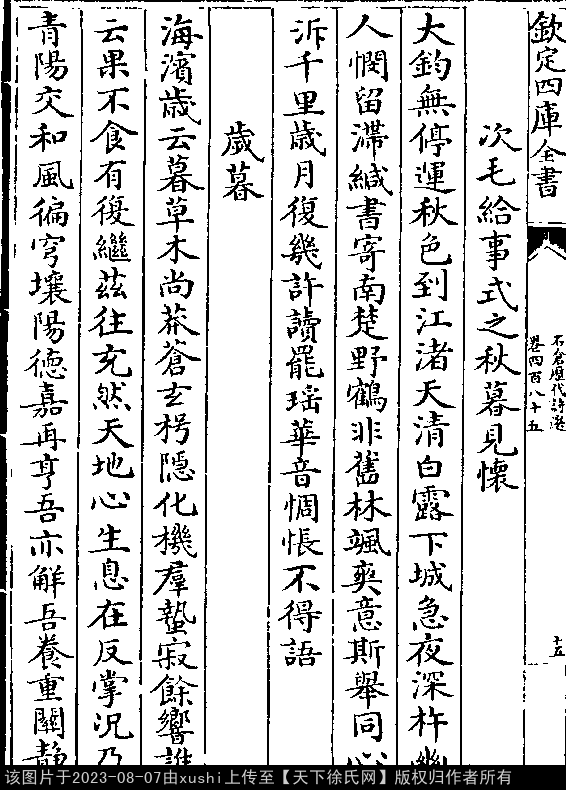 欽定四庫全書
石倉歷代詩選
卷四百八十五
十五
次毛給事式之秋暮見懷
大鈞無停運秋色到江渚天清白露下城急夜深杵
人憫留滯緘書寄南楚野鶴非舊林颯爽意斯舉同心
泝千里歲月復幾許讀罷瑤華音惆悵不得語
歲暮
海濱歲云暮草木尚莽蒼玄枵隱化機羣蟄寂餘響誰
云果不食有復繼茲往充然天地心生息在反掌况乃
青陽交和風徧穹壤陽德嘉再亨吾亦解吾養重關靜
该图片于2023-08-07由xushi上传至【天下徐氏网】版权归作者所有